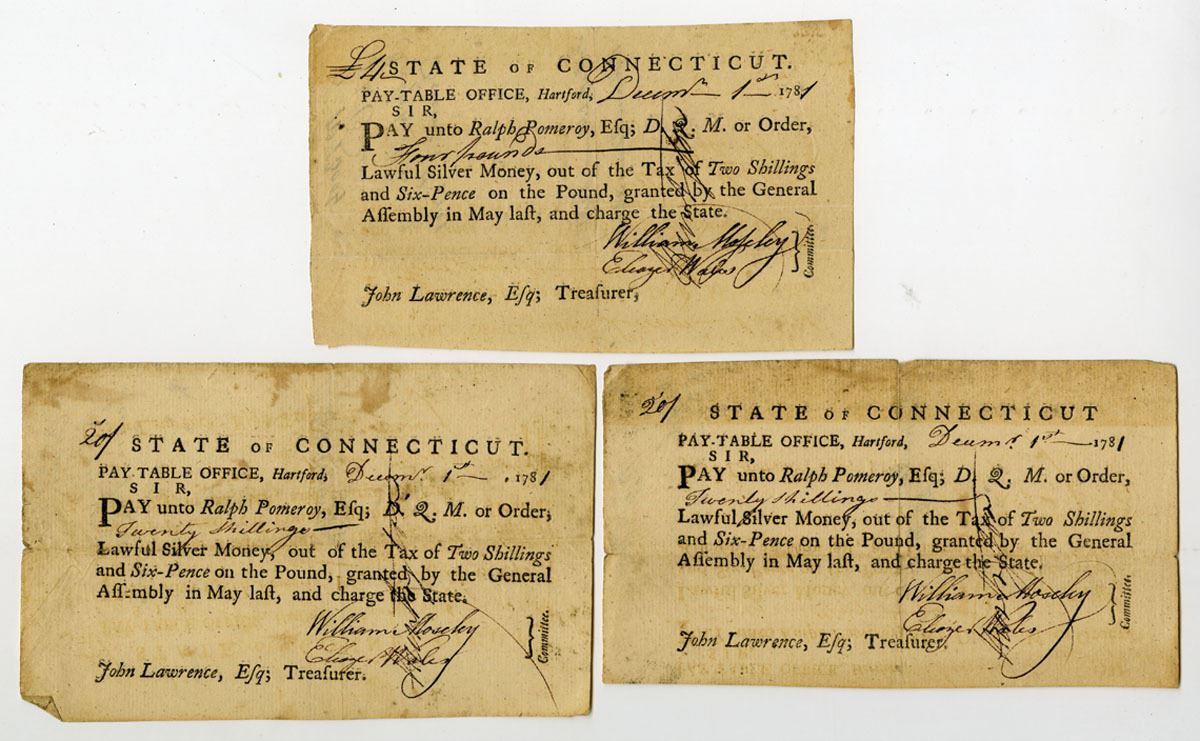 £4 STATE OF CONNECTICUT.
PAY-TABLE OFFICE, Hartford, Decemr 1st 1781
SIR,
PAY unto Ralph Pomeroy, Eſq; D. Q. M. or Order,
Four pounds
Lawful Silver Money, out of the Tax of Two Shillings
and Six-Pence on the Pound, granted by the General
Aſſembly in May laſt, and charge the State.
William Moseley
Eleazer Wales
Committee.
John Lawrence, Eſq; Treaſurer,
20/ STATE OF CONNECTICUT.
PAY-TABLE OFFICE, Hartford, Decemr 1st 1781
SIR,
PAY unto Ralph Pomeroy, Eſq; D. Q. M. or Order,
Twenty Shillings
Lawful Silver Money, out of the Tax of Two Shillings
and Six-Pence on the Pound, granted by the General
Aſſembly in May laſt, and charge the State.
William Moseley
Eleazer Wales
Committee.
John Lawrence, Eſq; Treaſurer.
20/ STATE OF CONNECTICUT
PAY-TABLE OFFICE, Hartford, Decemr 1st 1781
SIR,
PAY unto Ralph Pomeroy, Eſq; D. Q. M. or Order,
Twenty Shillings
Lawful Silver Money, out of the Tax of Two Shillings
and Six-Pence on the Pound, granted by the General
Aſſembly in May laſt, and charge the State.
William Moseley
Eleazer Wales
Committee.
John Lawrence, Eſq; Treaſurer.